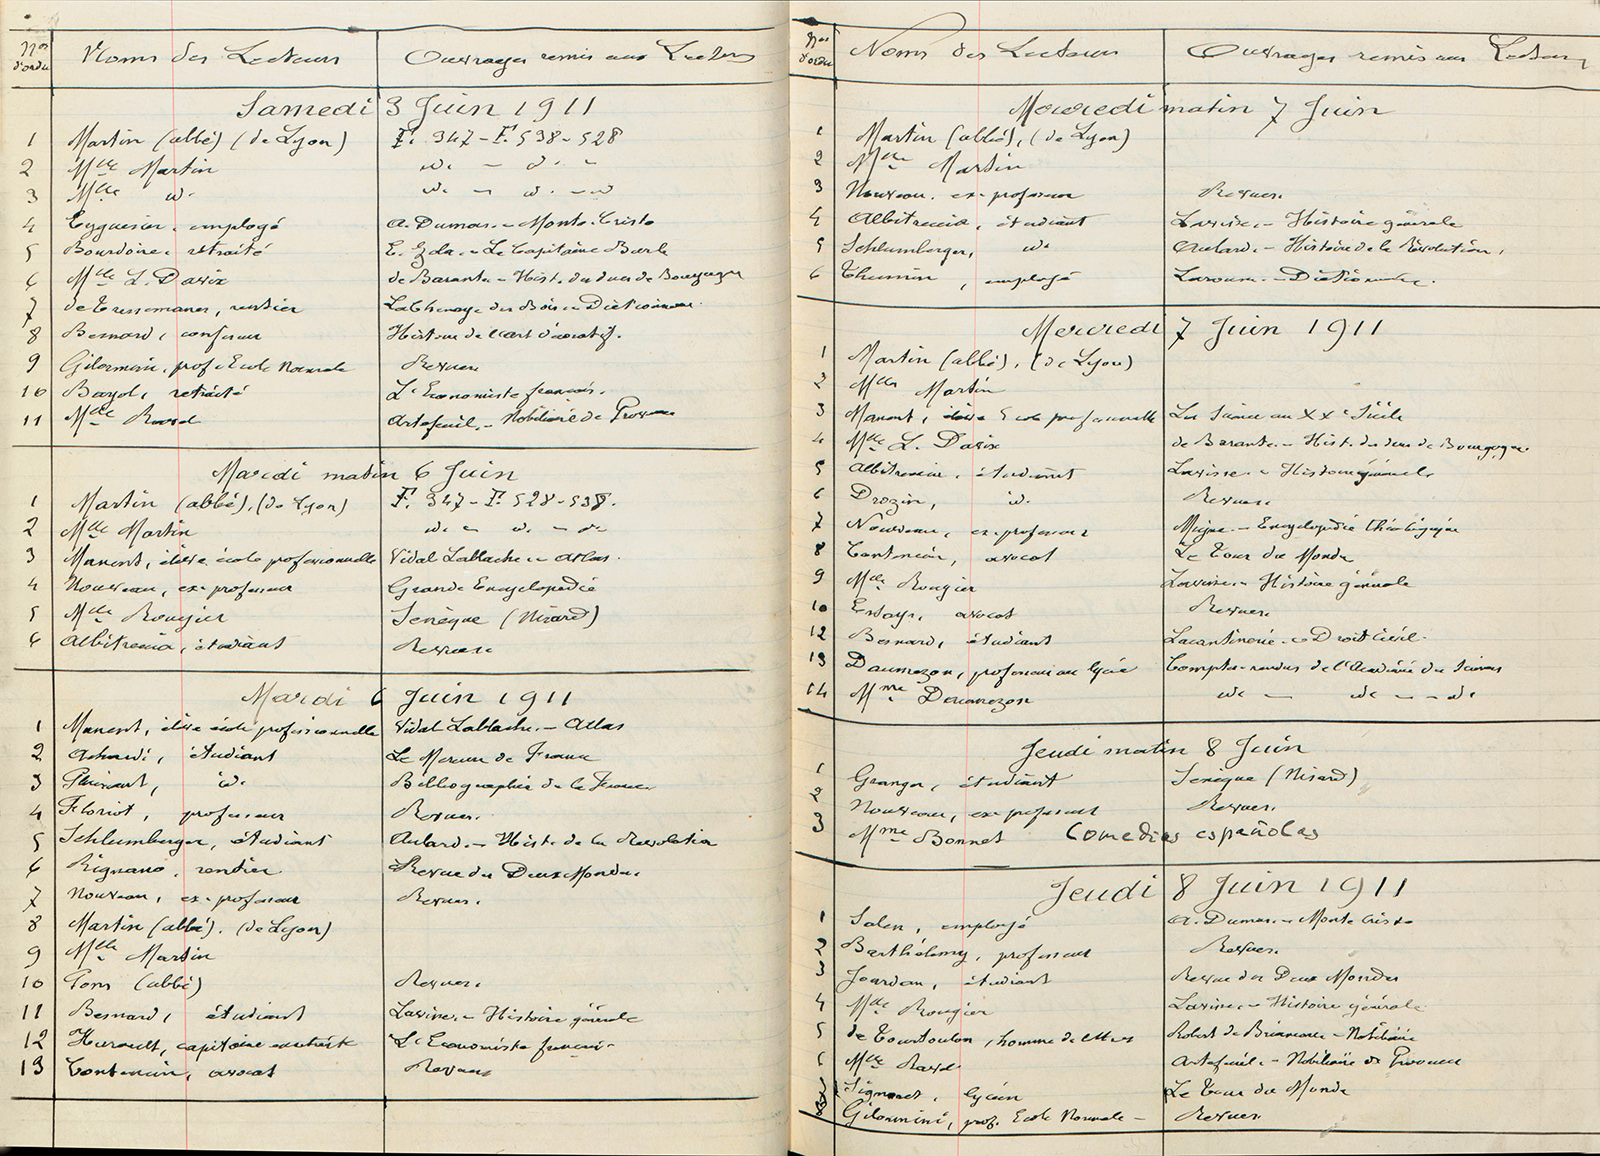 Nos d'ordre Noms des Lecteurs Ouvrages remis aux Lecteurs
Samedi 3 Juin 1911
1 Martin (abbé) (de Lyon) F. 347 - F. 538 - 528
2 Mlle Martin id. - d° -
3 Mlle id. id. - id. - id
4 Eyguesier, employé A. Dumas. - Monte-Cristo
5 Bourdoire, retraité E. Zola. - Le Capitaine Burle
6 Mlle L. Davix de Barante. - Hist. des ducs de Bourgogne
7 de Tressemanes, rentier La Chenaye des Bois. - Dictionnaire.
8 Bernard, confiseur Histoire de l'art décoratif.
9 Gilormini, prof. Ecole Normale Revues
10 Bayol, retraité L'Economiste français.
11 Mlle Ravel Artefeuil. - Nobiliaire de Provence
Mardi matin 6 Juin
1 Martin (abbé), (de Lyon) F. 347 - F. 528 - 538.
2 Mlle Martin id. - id. - id.
3 Manent, élève école professionnelle Vidal Lablache. - Atlas.
4 Nouveau, ex-professeur Grande Encyclopédie
5 Mlle Rougier Senèque (Nisard)
6 Albitreccia, étudiant Revues.
Mardi 6 Juin 1911
1 Manent, élève école professionnelle Vidal Lablache. - Atlas
2 Achardi, étudiant Le Mercure de France
3 id. Bibliographie de la France
4 Floriot, professeur Revues.
5 Schlumberger, étudiant Aulard. - Hist. de la Révolution
6 Rignano, rentier Revue des Deux Mondes.
7 Nouveau, ex-professeur Revues.
8 Martin (abbé). (de Lyon)
9 Mlle Martin
10 Pons (abbé) Revues.
11 Bernard, étudiant Lavisse. - Histoire générale
12 Hurault, capitaine en retraite L'Economiste français.
13 Contencin, avocat Revues
Nos d'ordre Noms des Lecteurs Ouvrages remis aux Lecteurs
Mercredi matin 7 Juin
1 Martin (abbé), (de Lyon)
2 Mlle Martin
3 Nouveau, ex-professeur Revues.
4 Albitreccia, étudiant Lavisse. - Histoire générale
5 Schlumberger, id. Aulard. - Histoire de la Révolution.
6 Thumin, employé Larousse. - Dictionnaire.
Mercredi 7 Juin 1911
1 Martin (abbé), (de Lyon)
2 Mlle Martin
3 Manent, élève Ecole professionnelle La Science au XXe Siècle
4 Mlle L. Davix de Barante. - Hist. des ducs de Bourgogne
5 Albitreccia, étudiant Lavisse. - Histoire générale
6 Drozin, id. Revues.
7 Nouveau, ex-professeur Migne. - Encyclopédie théologique
8 Contencin, avocat Le Tour du Monde
9 Mlle Rougier Lavisse. - Histoire générale
10 avocat Revues.
12 Bernard, étudiant Lacantinerie. - Droit Civil.
13 Daumezon, professeur au lycée Comptes-rendus de l'Académie des Sciences
14 Mme Daumezon id. - id. - - id.
Jeudi matin 8 Juin
1 Granger, étudiant Senèque (Nisard)
2 Nouveau, ex-professeur Revues.
3 Mme Bonnet Comedias españolas
Jeudi 8 Juin 1911
1 Salen, employé A. Dumas. - Monte Cristo
2 Barthélemy, professeur Revues.
3 Jourdan, étudiant Revue des Deux Mondes
4 Mlle Rougier Lavisse. - Histoire générale
5 de Tourtoulon, homme de lettres Robert de Briançon. - Nobiliaire
6 Mlle Ravel Artefeuil. - Nobiliaire de Provence
lycéen Le Tour du Monde
8 Gilormini, prof. Ecole Normale - Revues.